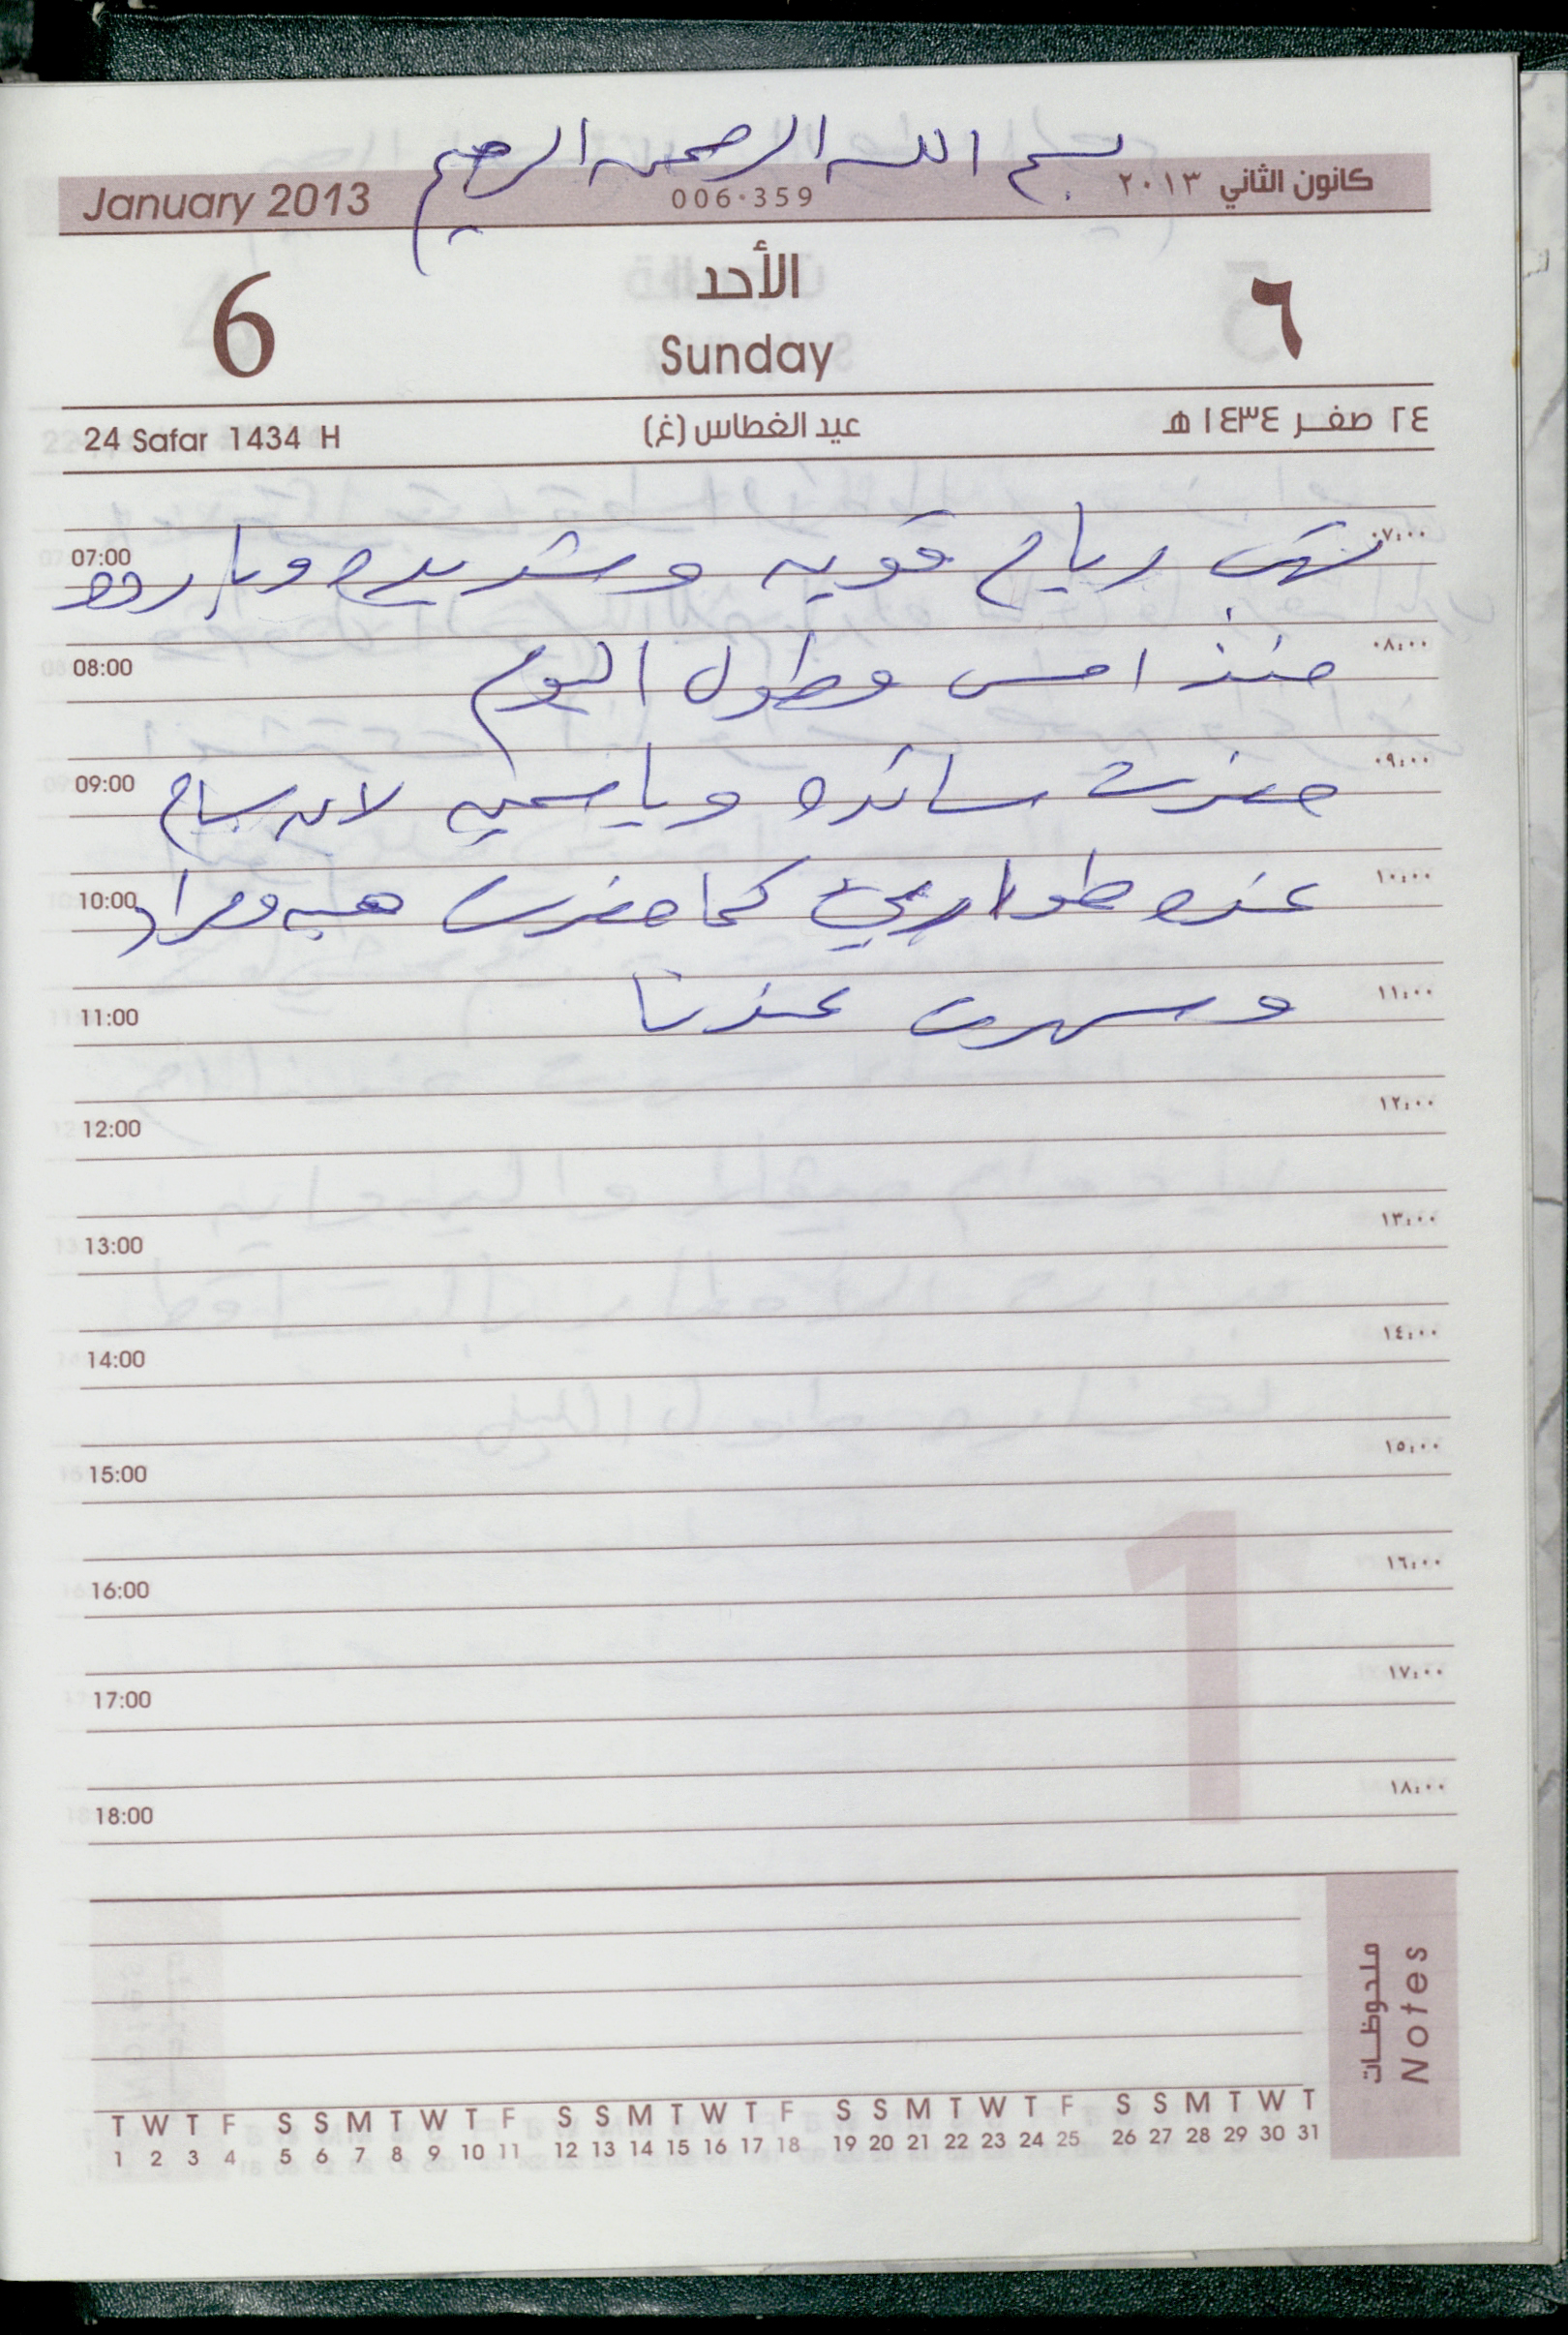 بسم الله الرحمن الرحيم
January 2013 006·359 كانون الثاني ٢٠١٣
6 الأحد ٦
Sunday
24 Safar 1434 H عيد الغطاس (غ) ٢٤ صفر ١٤٣٤ هـ
٠٧:٠٠
07:00 تهب رياح قويه وشديده وبارده
٠٨:٠٠
08:00 منذ امس وطول اليوم
٠٩:٠٠
09:00 حضرت سائده وياسمين لان سياح
١٠:٠٠
10:00 عنده طوارئ كما حضرت هبه ومراد
١١:٠٠
11:00 وسهرت عندنا
١٢:٠٠
12:00
١٣:٠٠
13:00
١٤:٠٠
14:00
١٥:٠٠
15:00
١٦:٠٠
16:00
1
١٧:٠٠
17:00
١٨:٠٠
18:00
ملحوظات
Notes
T W T F S S M T W T F S S M T W T F S S M T W T F S S M T W T
1 2 3 4 5 6 7 8 9 10 11 12 13 14 15 16 17 18 19 20 21 22 23 24 25 26 27 28 29 30 31